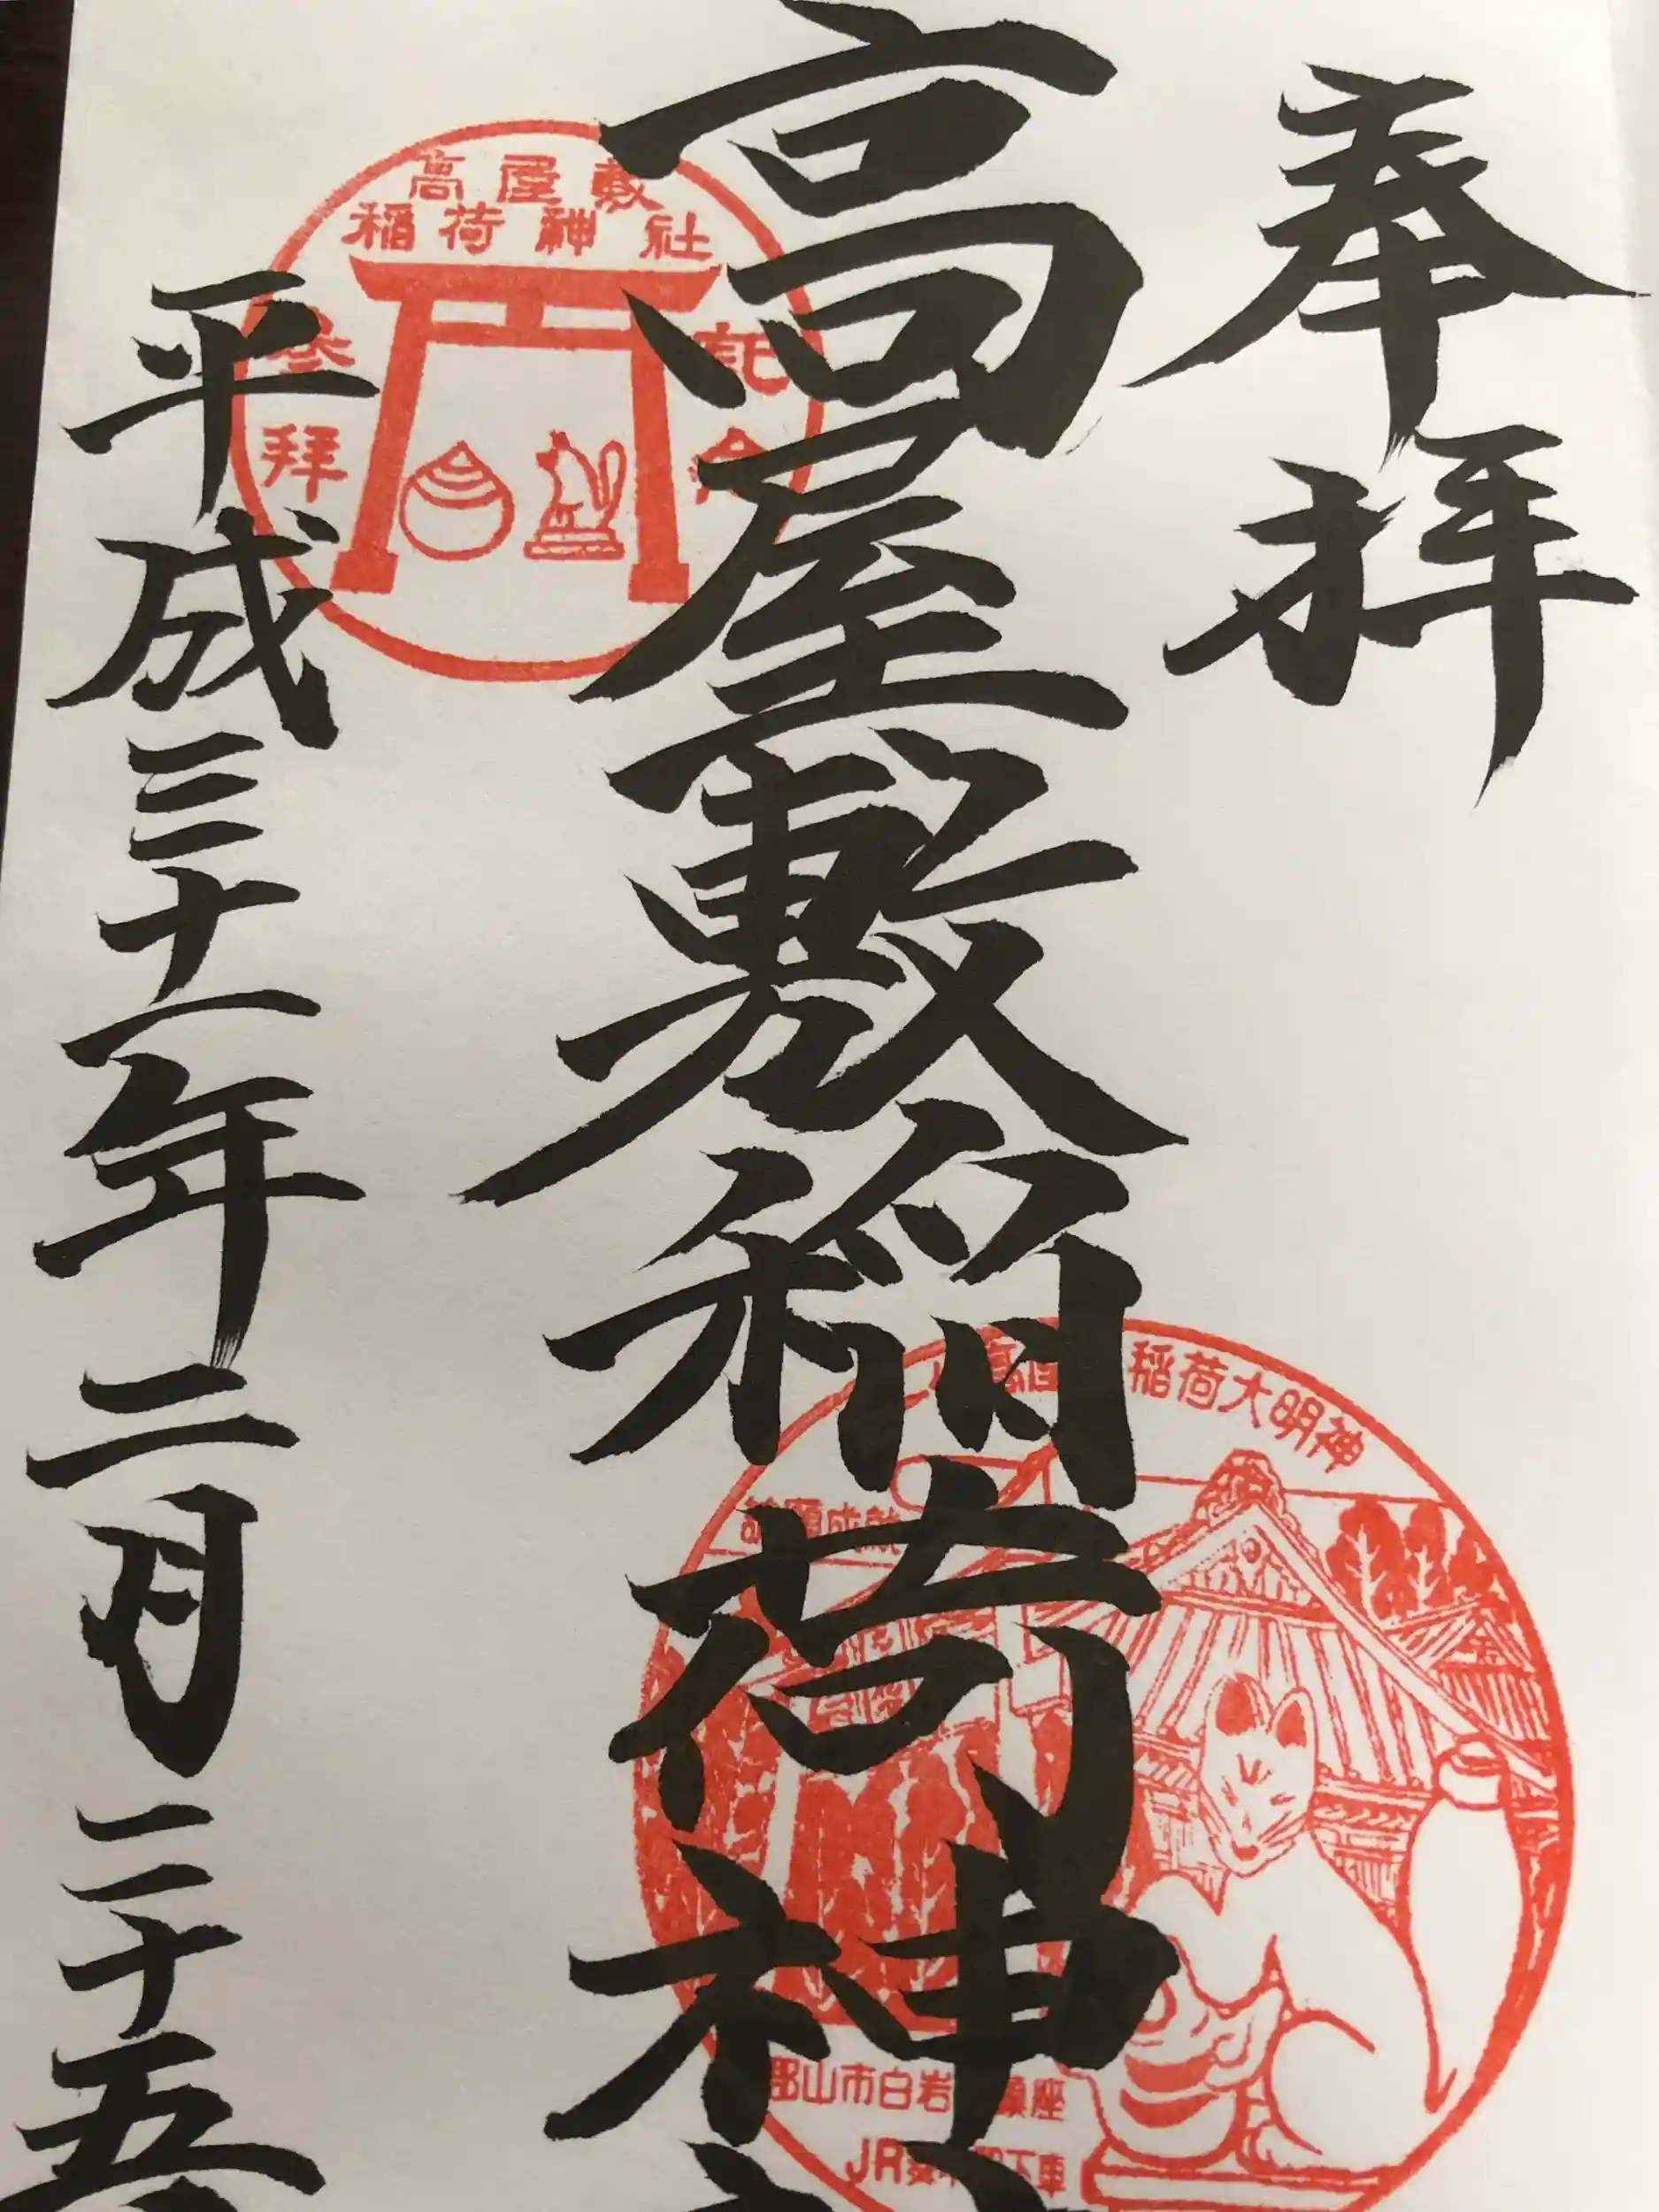 奉拝
高屋敷稲荷神
平成三十一年二月二十五
高屋敷
稲荷神社
参拝
記念
稲荷大明神
郡山市白岩
鎮座
JR
下車